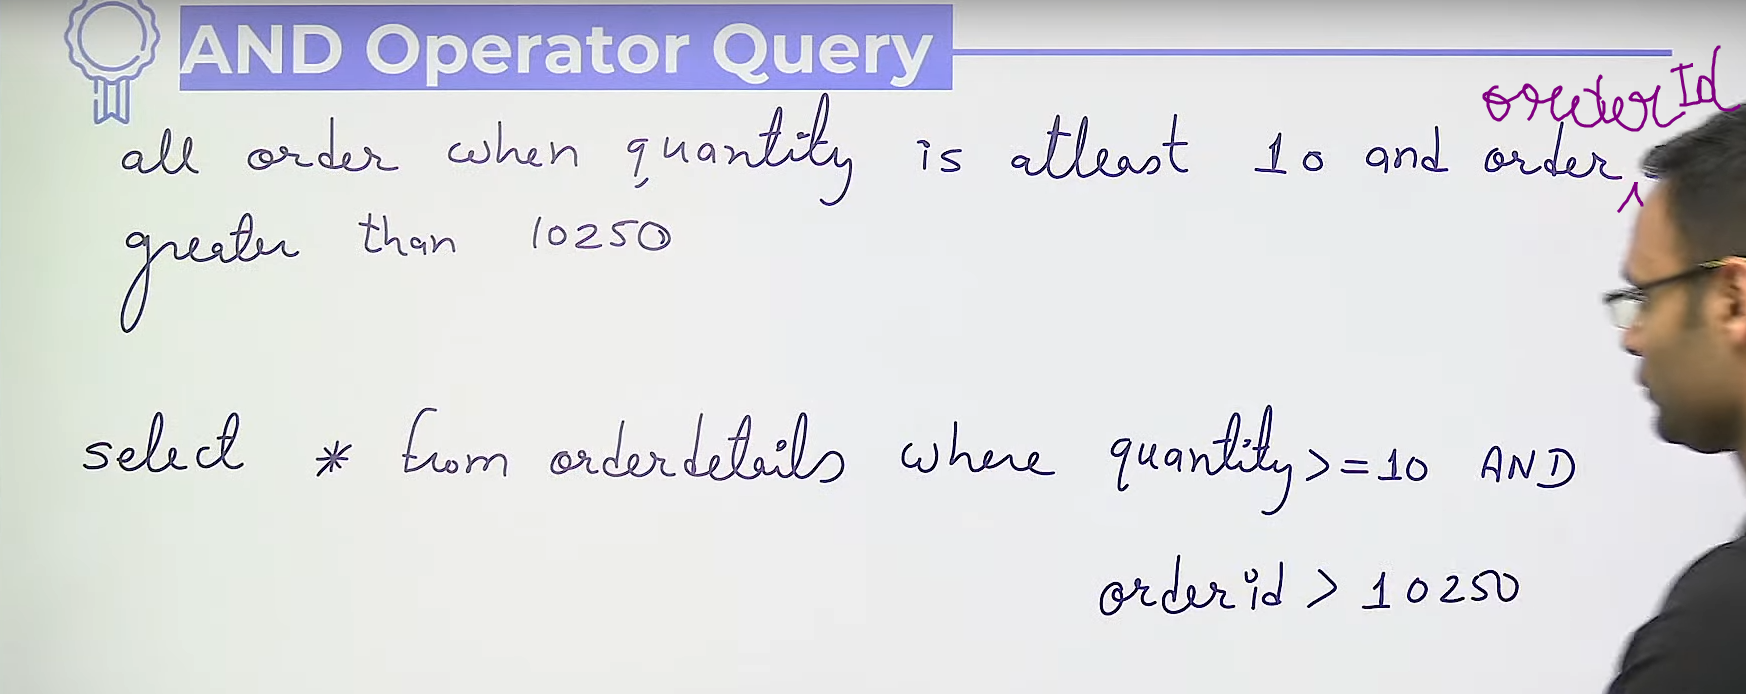 AND Operator Query
orderId
all order when quantity is atleast 10 and order
greater than 10250
select * from orderdetails where quantity>=10 AND
orderid > 10250